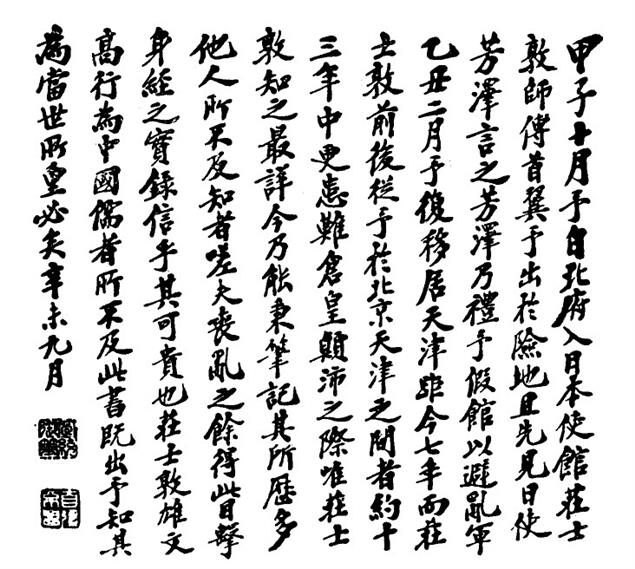 甲子十月予自北府入日本使館莊士
敦師傅首翼予出於險地且先見日使
芳澤言之芳澤乃禮予假館以避亂軍
乙丑二月予復移居天津距今七年而莊
士敦前後從予於北京天津之間者約十
三年中更患難倉皇顛沛之際唯莊士
敦知之最詳今乃能秉筆記其所歷多
他人所不及知者嗟夫喪亂之餘得此目擊
身經之實錄信乎其可貴也莊士敦雄文
高行為中國儒者所不及此書既出予知其
為當世所重必矣辛未九月